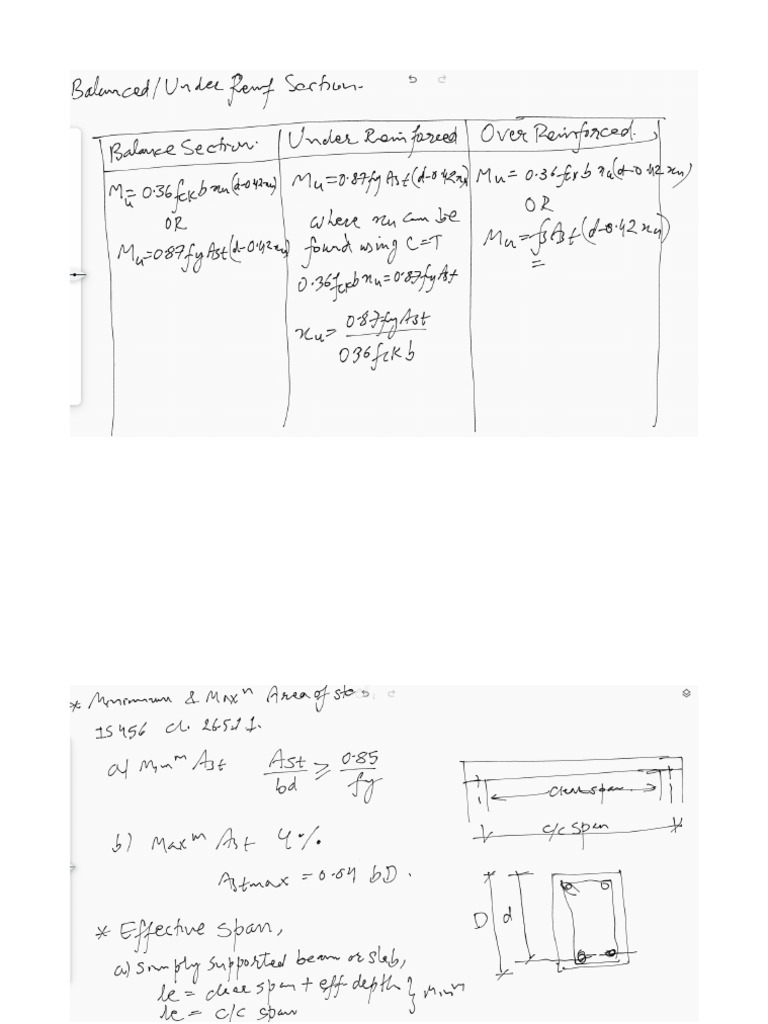 Balanced/Under Reinf Section.
Balance Section.
Mu = 0.36 fck b xu (d-0.42xu)
OR
Mu = 0.87 fy Ast (d-0.42xu)
Under Reinforced
Mu = 0.87 fy Ast (d-0.42xu)
where xu can be
found using C=T
0.36 fck b xu = 0.87 fy Ast
xu = 0.87 fy Ast / 0.36 fck b
Over Reinforced.
Mu = 0.36 fck b xu (d-0.42xu)
OR
Mu = fs Ast (d-0.42xu)
* Minimum & Maxm Area of ste
IS 456 cl. 26.5.1.1.
a) Minm Ast Ast/bd ≥ 0.85/fy
b) Maxm Ast 4%.
Astmax = 0.04 bD.
* Effective span,
a) Simply supported beam or slab,
le = clear span + eff depth } Minm
le = c/c span
clear span.
c/c span
D
d